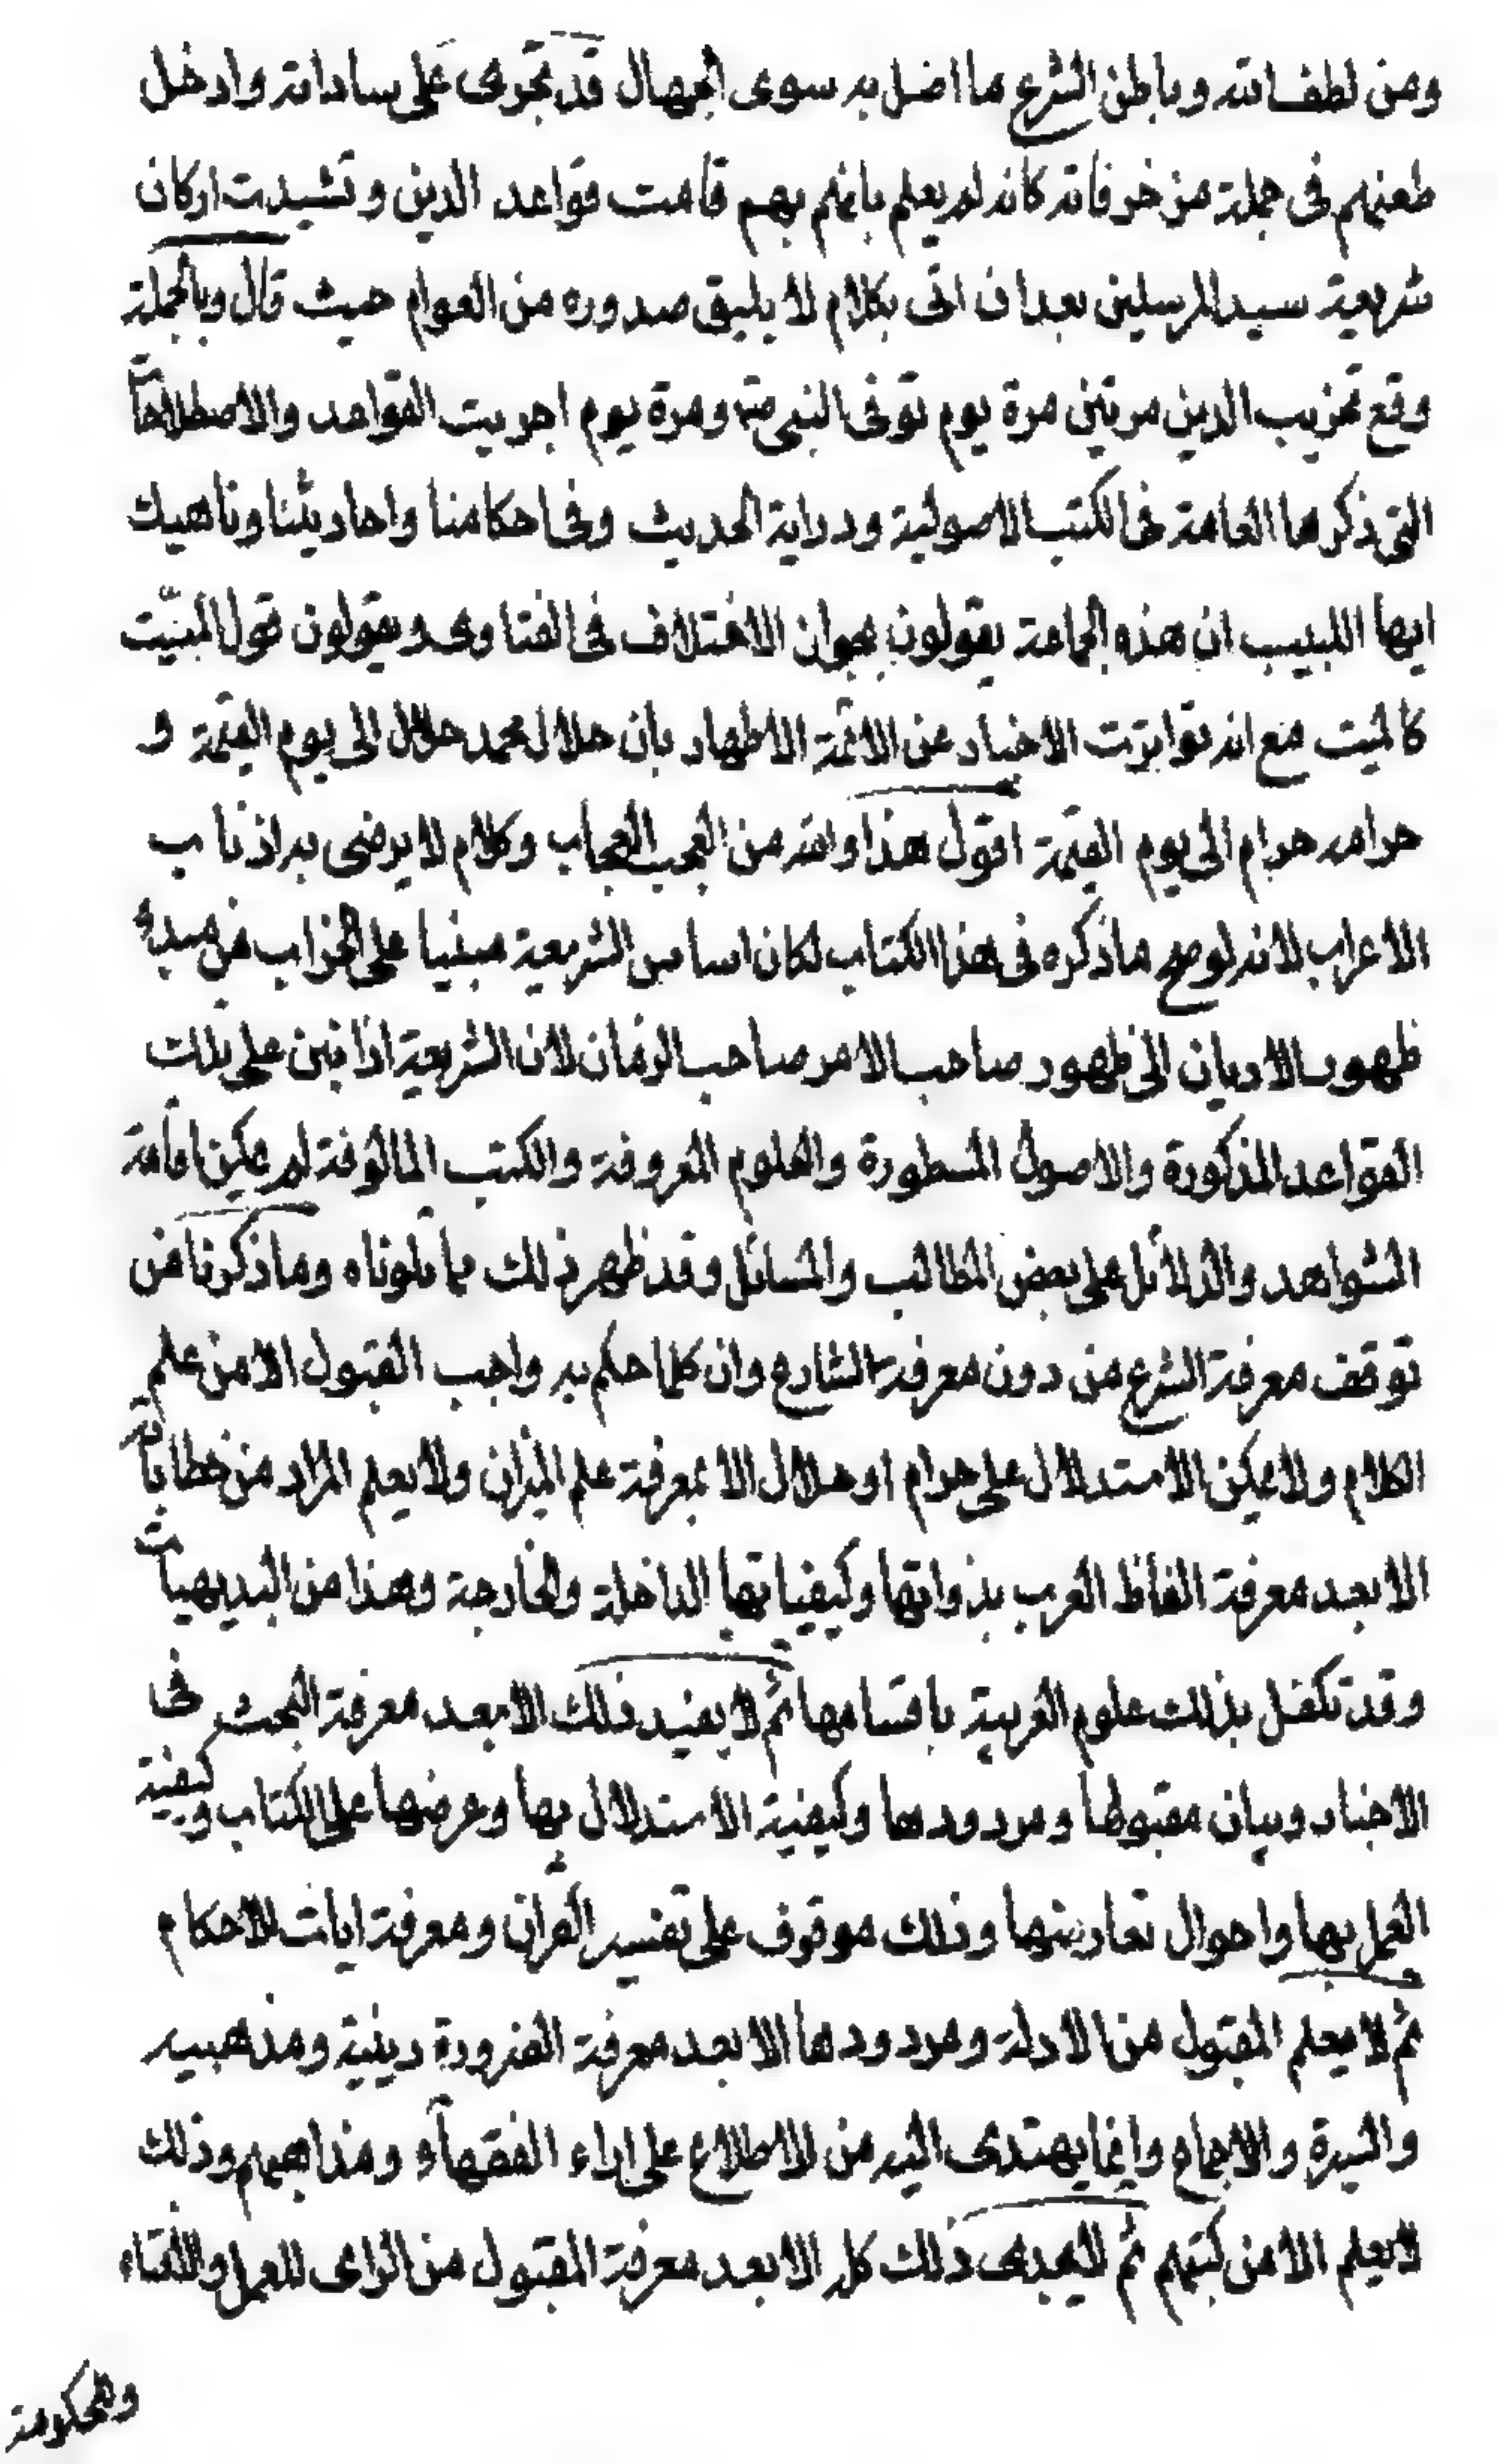 ومن لطف الله وباطن الشرع ما اضل به سوى الجهال قد تجرى على ساداته وادخل
طعنهم فى جملة مزخرفاته كانه لم يعلم بانهم بهم قامت قواعد الدين وتشيدت اركان
شريعة سيد المرسلين بعد ان اتى بكلام لا يليق صدوره من العوام حيث قال وبالجملة
وقع تخريب الدين مرتين مرة يوم توفى النبى ص ومرة يوم اجريت القواعد والاصطلاحات
التى ذكرها العامة فى الكتب الاصولية ودراية الحديث وفى احكامنا واحاديثنا وناهيك
ايها اللبيب ان هذه الجماعة يقولون بجواز الاختلاف فى الفتاوى ويقولون قول الميّت
كالميت مع انه تواترت الاخبار عن الائمّة الاطهار بان حلال محمد حلال الى يوم القيمة و
حرامه حرام الى يوم القيمة اقول هذا والله من العجب العجاب وكلام لا يرضى به اذناب
الاعراب لانه لو صح ما ذكره فى هذا الكتاب لكان اساس الشريعة مبنيا على الخراب من مبدء
ظهور الاديان الى ظهور صاحب الامر صاحب الزمان لان الشريعة اذا لم تبن على تلك
القواعد المذكورة والاصول المسطورة والعلوم المعروفة والكتب المالوفة لم يمكن اقامة
الشواهد والدلائل على بعض المطالب والمسائل وقد ظهر ذلك بما تلوناه وما ذكرنا من
توقف معرفة الشرع من دون معرفة الشارع وان كلما حكم به واجب القبول الا من علم
الكلام ولا يمكن الاستدلال على حرام او حلال الا بمعرفة علم الميزان ولا يعلم المراد من خطاباته
الا بعد معرفة الفاظ العرب بذواتها وكيفياتها الداخلة والخارجة وهذا من البديهيات
وقد تكفل بذلك علوم العربية باقسامها ثم لا يفيد ذلك الا بعد معرفة البحث فى
الاخبار وبيان مقبولها ومردودها وكيفية الاستدلال بها وعرضها على الكتاب وكيفية
العمل بها واحوال تعارضها وذلك موقوف على تفسير القران ومعرفة ايات الاحكام
ثم لا يعلم المقبول من الادلة ومردودها الا بعد معرفة الضرورة دينية ومذهبيه
والسيرة والاجماع وانما يهتدى اليه من الاطلاع على اراء الفقهاء ومذاهبهم وذلك
لا يعلم الا من كتبهم ثم لا يجدى ذلك كله الا بعد معرفة المقبول من الراى للعمل والافتاء
والحكومة